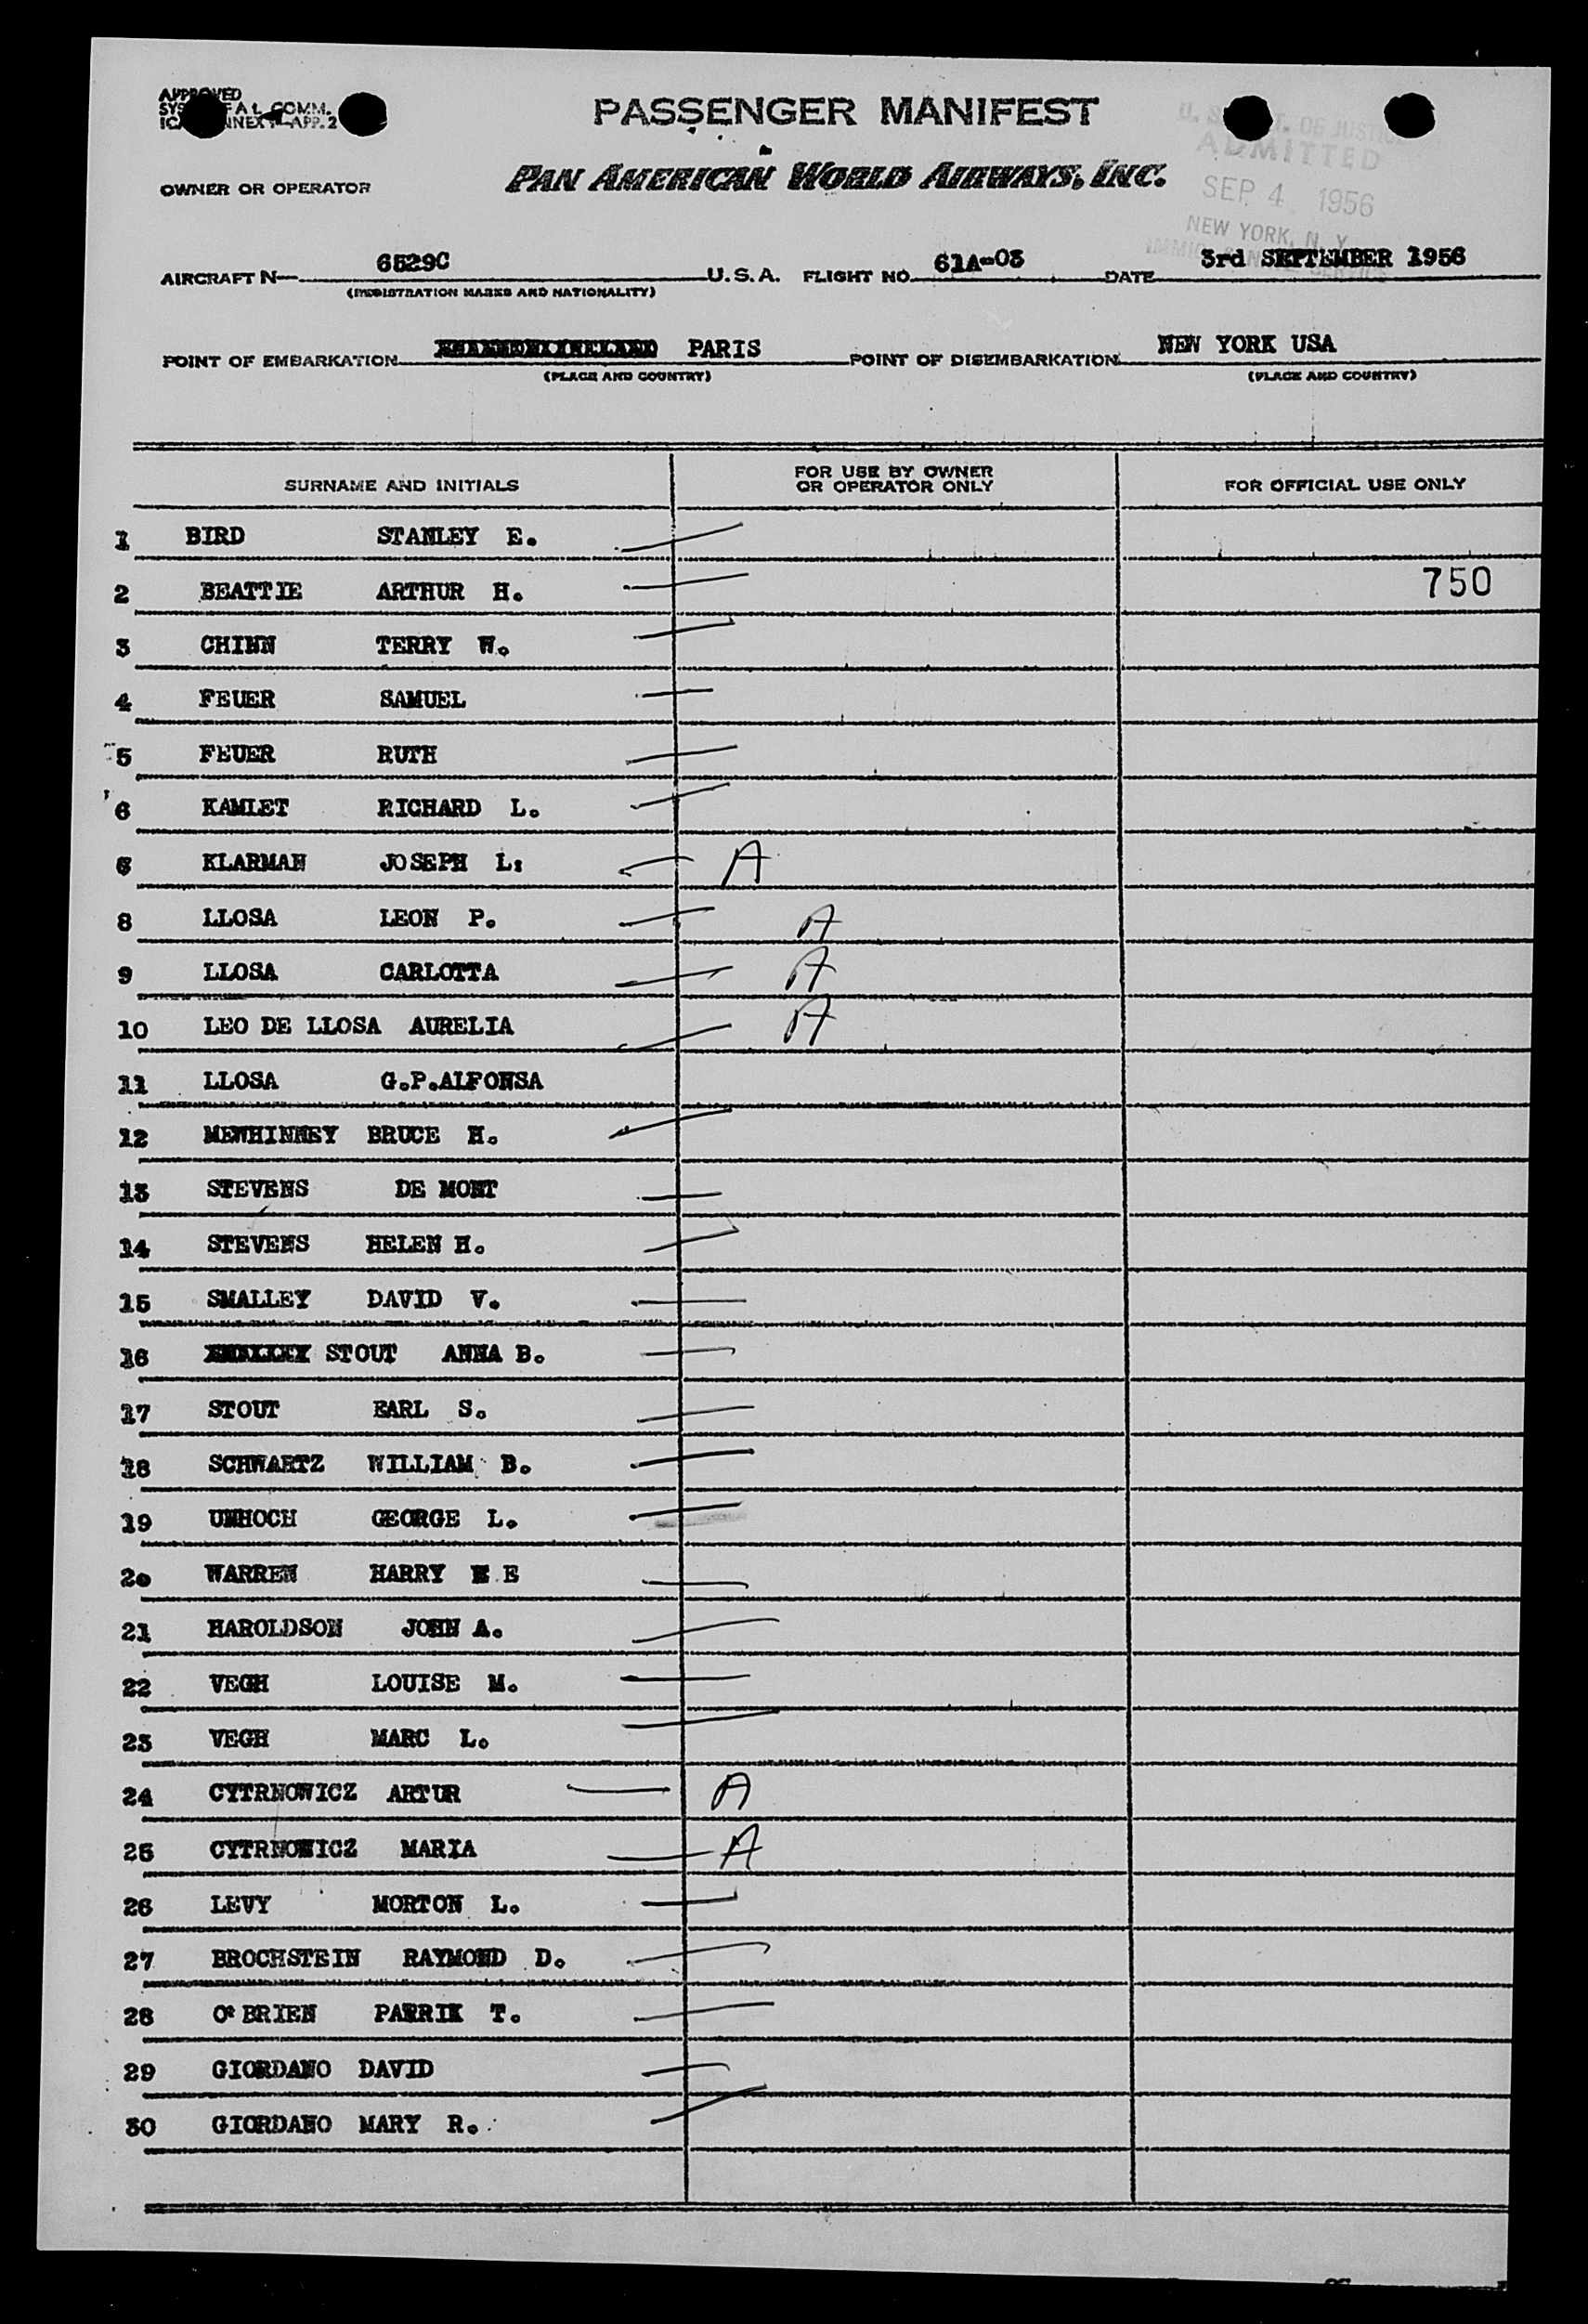 APPROVED
COMM.
APP. 2
PASSENGER MANIFEST
U. S. OF JUSTICE
ADMITTED
SEP 4 1956
NEW YORK, N. Y.
OWNER OR OPERATOR PAN AMERICAN WORLD AIRWAYS, INC.
AIRCRAFT N— 6529C U.S.A. FLIGHT NO. 61A-03 DATE 3rd SEPTEMBER 1956
(REGISTRATION MARKS AND NATIONALITY)
POINT OF EMBARKATION PARIS POINT OF DISEMBARKATION NEW YORK USA
(PLACE AND COUNTRY) (PLACE AND COUNTRY)
SURNAME AND INITIALS FOR USE BY OWNER OR OPERATOR ONLY FOR OFFICIAL USE ONLY
1 BIRD STANLEY E.
2 BEATTIE ARTHUR H. 750
3 CHINN TERRY W.
4 FEUER SAMUEL
5 FEUER RUTH
6 KAMLET RICHARD L.
6 KLARMAN JOSEPH L: A
8 LLOSA LEON P. A
9 LLOSA CARLOTTA A
10 LEO DE LLOSA AURELIA A
11 LLOSA G.P.ALFONSA
12 MEWHINNEY BRUCE H.
13 STEVENS DE MONT
14 STEVENS HELEN H.
15 SMALLEY DAVID V.
16 STOUT ANNA B.
17 STOUT EARL S.
18 SCHWARTZ WILLIAM B.
19 UMHOCH GEORGE L.
20 WARREN HARRY E
21 HAROLDSON JOHN A.
22 VEGH LOUISE M.
23 VEGH MARC L.
24 CYTRNOWICZ ARTUR A
25 CYTRNOWICZ MARIA A
26 LEVY MORTON L.
27 BROCHSTEIN RAYMOND D.
28 O'BRIEN T.
29 GIORDANO DAVID
30 GIORDANO MARY R.